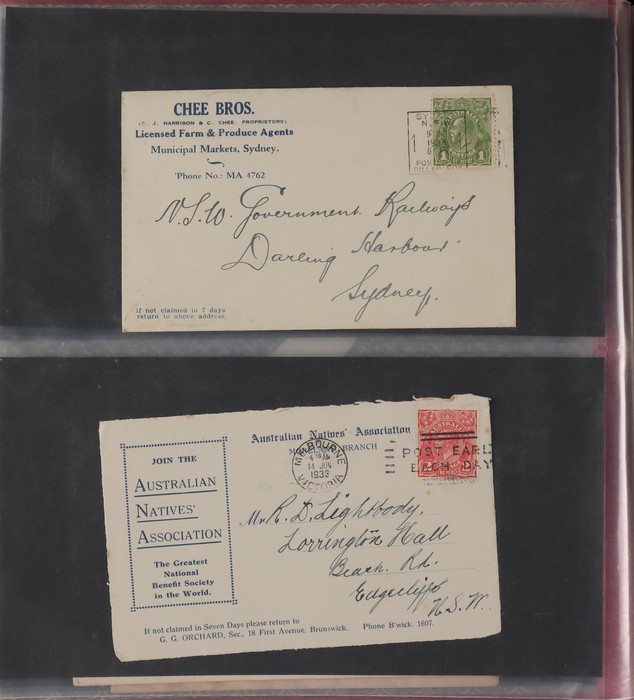 CHEE BROS.
J. HARRISON & C. CHEE. PROPRIETORS)
Licensed Farm & Produce Agents
Municipal Markets, Sydney.
'Phone No.: MA 4762
N.S.W. Government Railways
Darling Harbour
Sydney.
If not claimed in 7 days
return to above address.
AUSTRALIA
1 1
POST
Australian Natives' Association
BRANCH
JOIN THE
AUSTRALIAN
NATIVES'
ASSOCIATION
The Greatest
National
Benefit Society
in the World.
MELBOURNE
11 JUN
1933
VICTORIA
POST EARL
EACH DAY
Mr R. D. Lightbody,
Lorrington Hall
Beach. Rd.
Edgecliff
N.S.W.
If not claimed in Seven Days please return to
G. G. ORCHARD, Sec., 18 First Avenue, Brunswick. Phone B'wick. 1607.